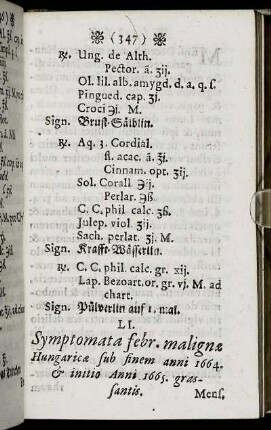 (347)
℞. Ung. de Alth.
Pector. ã. ʒij.
Ol. lil. alb. amygd. d. a. q. ſ.
Pingued. cap. ʒj.
Croci ℈j. M.
Sign. Bruſt-Sälblin.
℞. Aq. 3. Cordial.
fl. acac. ã. ℥j.
Cinnam. opt. ʒij.
Sol. Corall. ℈ij.
Perlar. ℈ß.
C. C. phil. calc. ʒß.
Julep. viol. ℥ij.
Sach. perlat. ʒj. M.
Sign. Krafft-Wäſſerlin.
℞. C. C. phil. calc. gr. xij.
Lap. Bezoart. or. gr. vj. M. ad
chart.
Sign. Pülverlin auf 1. mal.
LI.
Symptomata febr. malignæ
Hungaricæ ſub finem anni 1664.
& initio Anni 1665. graſ-
ſantis.
Menſ.